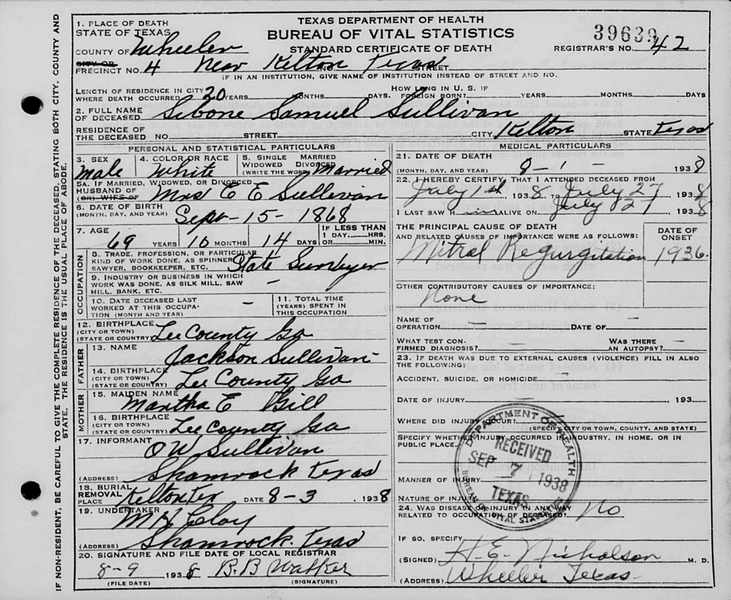 TEXAS DEPARTMENT OF HEALTH
BUREAU OF VITAL STATISTICS
STANDARD CERTIFICATE OF DEATH
39639
REGISTRAR'S NO. 42
1. PLACE OF DEATH
STATE OF TEXAS
COUNTY OF Wheeler
CITY OR
PRECINCT NO. 4 Near Kelton Texas STREET
IF IN AN INSTITUTION, GIVE NAME OF INSTITUTION INSTEAD OF STREET AND NO.
LENGTH OF RESIDENCE IN CITY
WHERE DEATH OCCURRED 20 YEARS MONTHS DAYS
HOW LONG IN U. S. IF
FOREIGN BORN? YEARS MONTHS DAYS
2. FULL NAME
OF DECEASED Sibone Samuel Sullivan
RESIDENCE OF
THE DECEASED NO. STREET CITY Kelton STATE Texas
PERSONAL AND STATISTICAL PARTICULARS
3. SEX
male
4. COLOR OR RACE
White
5. SINGLE MARRIED
WIDOWED DIVORCED
(WRITE THE WORD) Married
5A. IF MARRIED, WIDOWED, OR DIVORCED
HUSBAND OF
(OR) WIFE OF Mrs E E Sullivan
6. DATE OF BIRTH
(MONTH, DAY, AND YEAR) Sept-15-1868
7. AGE
69 YEARS 10 MONTHS 14 DAYS
IF LESS THAN
1 DAY HRS.
MIN.
OCCUPATION
8. TRADE, PROFESSION, OR PARTICULAR
KIND OF WORK DONE, AS SPINNER
SAWYER, BOOKKEEPER, ETC. State Surveyer
9. INDUSTRY OR BUSINESS IN WHICH
WORK WAS DONE, AS SILK MILL, SAW
MILL, BANK, ETC. -
10. DATE DECEASED LAST
WORKED AT THIS OCCUPA-
TION (MONTH AND YEAR)
11. TOTAL TIME
(YEARS) SPENT IN
THIS OCCUPATION
12. BIRTHPLACE
(CITY OR TOWN)
(STATE OR COUNTRY) Lee County Ga
FATHER
13. NAME
Jackson Sullivan
14. BIRTHPLACE
(CITY OR TOWN)
(STATE OR COUNTRY) Lee County Ga
MOTHER
15. MAIDEN NAME
Martha E Gill
16. BIRTHPLACE
(CITY OR TOWN)
(STATE OR COUNTRY) Lee County Ga
17. INFORMANT
O W Sullivan
(ADDRESS) Shamrock Texas
18. BURIAL
REMOVAL
PLACE Kelton Tex DATE 8-3 1938
19. UNDERTAKER
M H Clay
(ADDRESS) Shamrock. Texas
20. SIGNATURE AND FILE DATE OF LOCAL REGISTRAR
8-9 1938 B.B Walker
(FILE DATE) (SIGNATURE)
MEDICAL PARTICULARS
21. DATE OF DEATH
(MONTH, DAY, AND YEAR) 8-1- 1938
22. I HEREBY CERTIFY THAT I ATTENDED DECEASED FROM
July 1st 1938 July 27 1938
I LAST SAW H im ALIVE ON July 27 1938
THE PRINCIPAL CAUSE OF DEATH
AND RELATED CAUSES OF IMPORTANCE WERE AS FOLLOWS:
DATE OF
ONSET
Mitral Regurgitation 1936
OTHER CONTRIBUTORY CAUSES OF IMPORTANCE:
None
NAME OF
OPERATION - DATE OF -
WHAT TEST CON-
FIRMED DIAGNOSIS? -
WAS THERE
AN AUTOPSY? -
23. IF DEATH WAS DUE TO EXTERNAL CAUSES (VIOLENCE) FILL IN ALSO
THE FOLLOWING:
ACCIDENT, SUICIDE, OR HOMICIDE -
DATE OF INJURY 193
WHERE DID INJURY OCCUR?
(SPECIFY CITY OR TOWN, COUNTY, AND STATE)
SPECIFY WHETHER INJURY OCCURRED IN INDUSTRY, IN HOME, OR IN
PUBLIC PLACE
MANNER OF INJURY
NATURE OF INJURY
24. WAS DISEASE OR INJURY IN ANY WAY
RELATED TO OCCUPATION OF DECEASED? No
IF SO, SPECIFY
(SIGNED) H. E. Nicholson M. D.
(ADDRESS) Wheeler Texas
DEPARTMENT OF HEALTH
RECEIVED
SEP 7 1938
TEXAS
BUREAU OF VITAL STATISTICS
IF NON-RESIDENT, BE CAREFUL TO GIVE THE COMPLETE RESIDENCE OF THE DECEASED, STATING BOTH CITY, COUNTY AND
STATE. THE RESIDENCE IS THE USUAL PLACE OF ABODE.